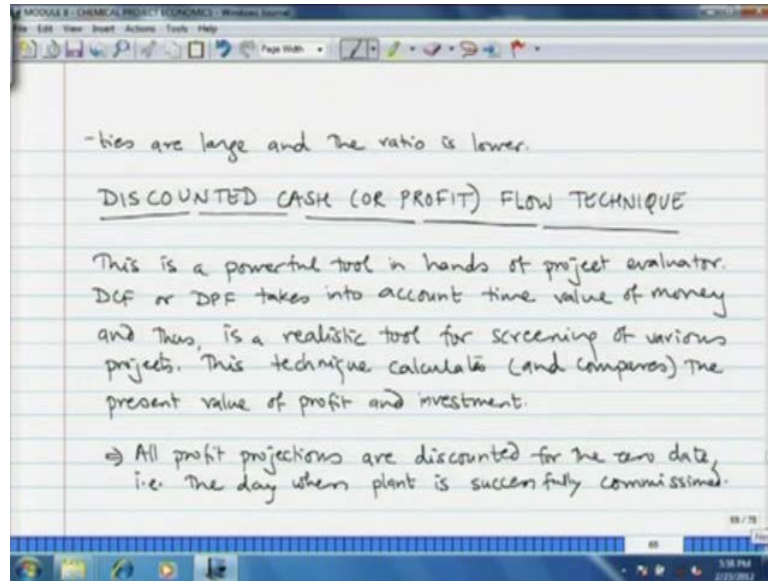 MODULE 8 - CHEMICAL PROJECT ECONOMICS - Windows Journal
File Edit View Insert Actions Tools Help
Page Width
-ties are large and the ratio is lower.
DISCOUNTED CASH (OR PROFIT) FLOW TECHNIQUE
This is a powerful tool in hands of project evaluator.
DCF or DPF takes into account time value of money
and thus, is a realistic tool for screening of various
projects. This technique calculates (and compares) the
present value of profit and investment.
⇒ All profit projections are discounted for the zero date,
i.e. the day when plant is successfully commissioned.
69 / 70
60
3:38 PM
2/23/2012